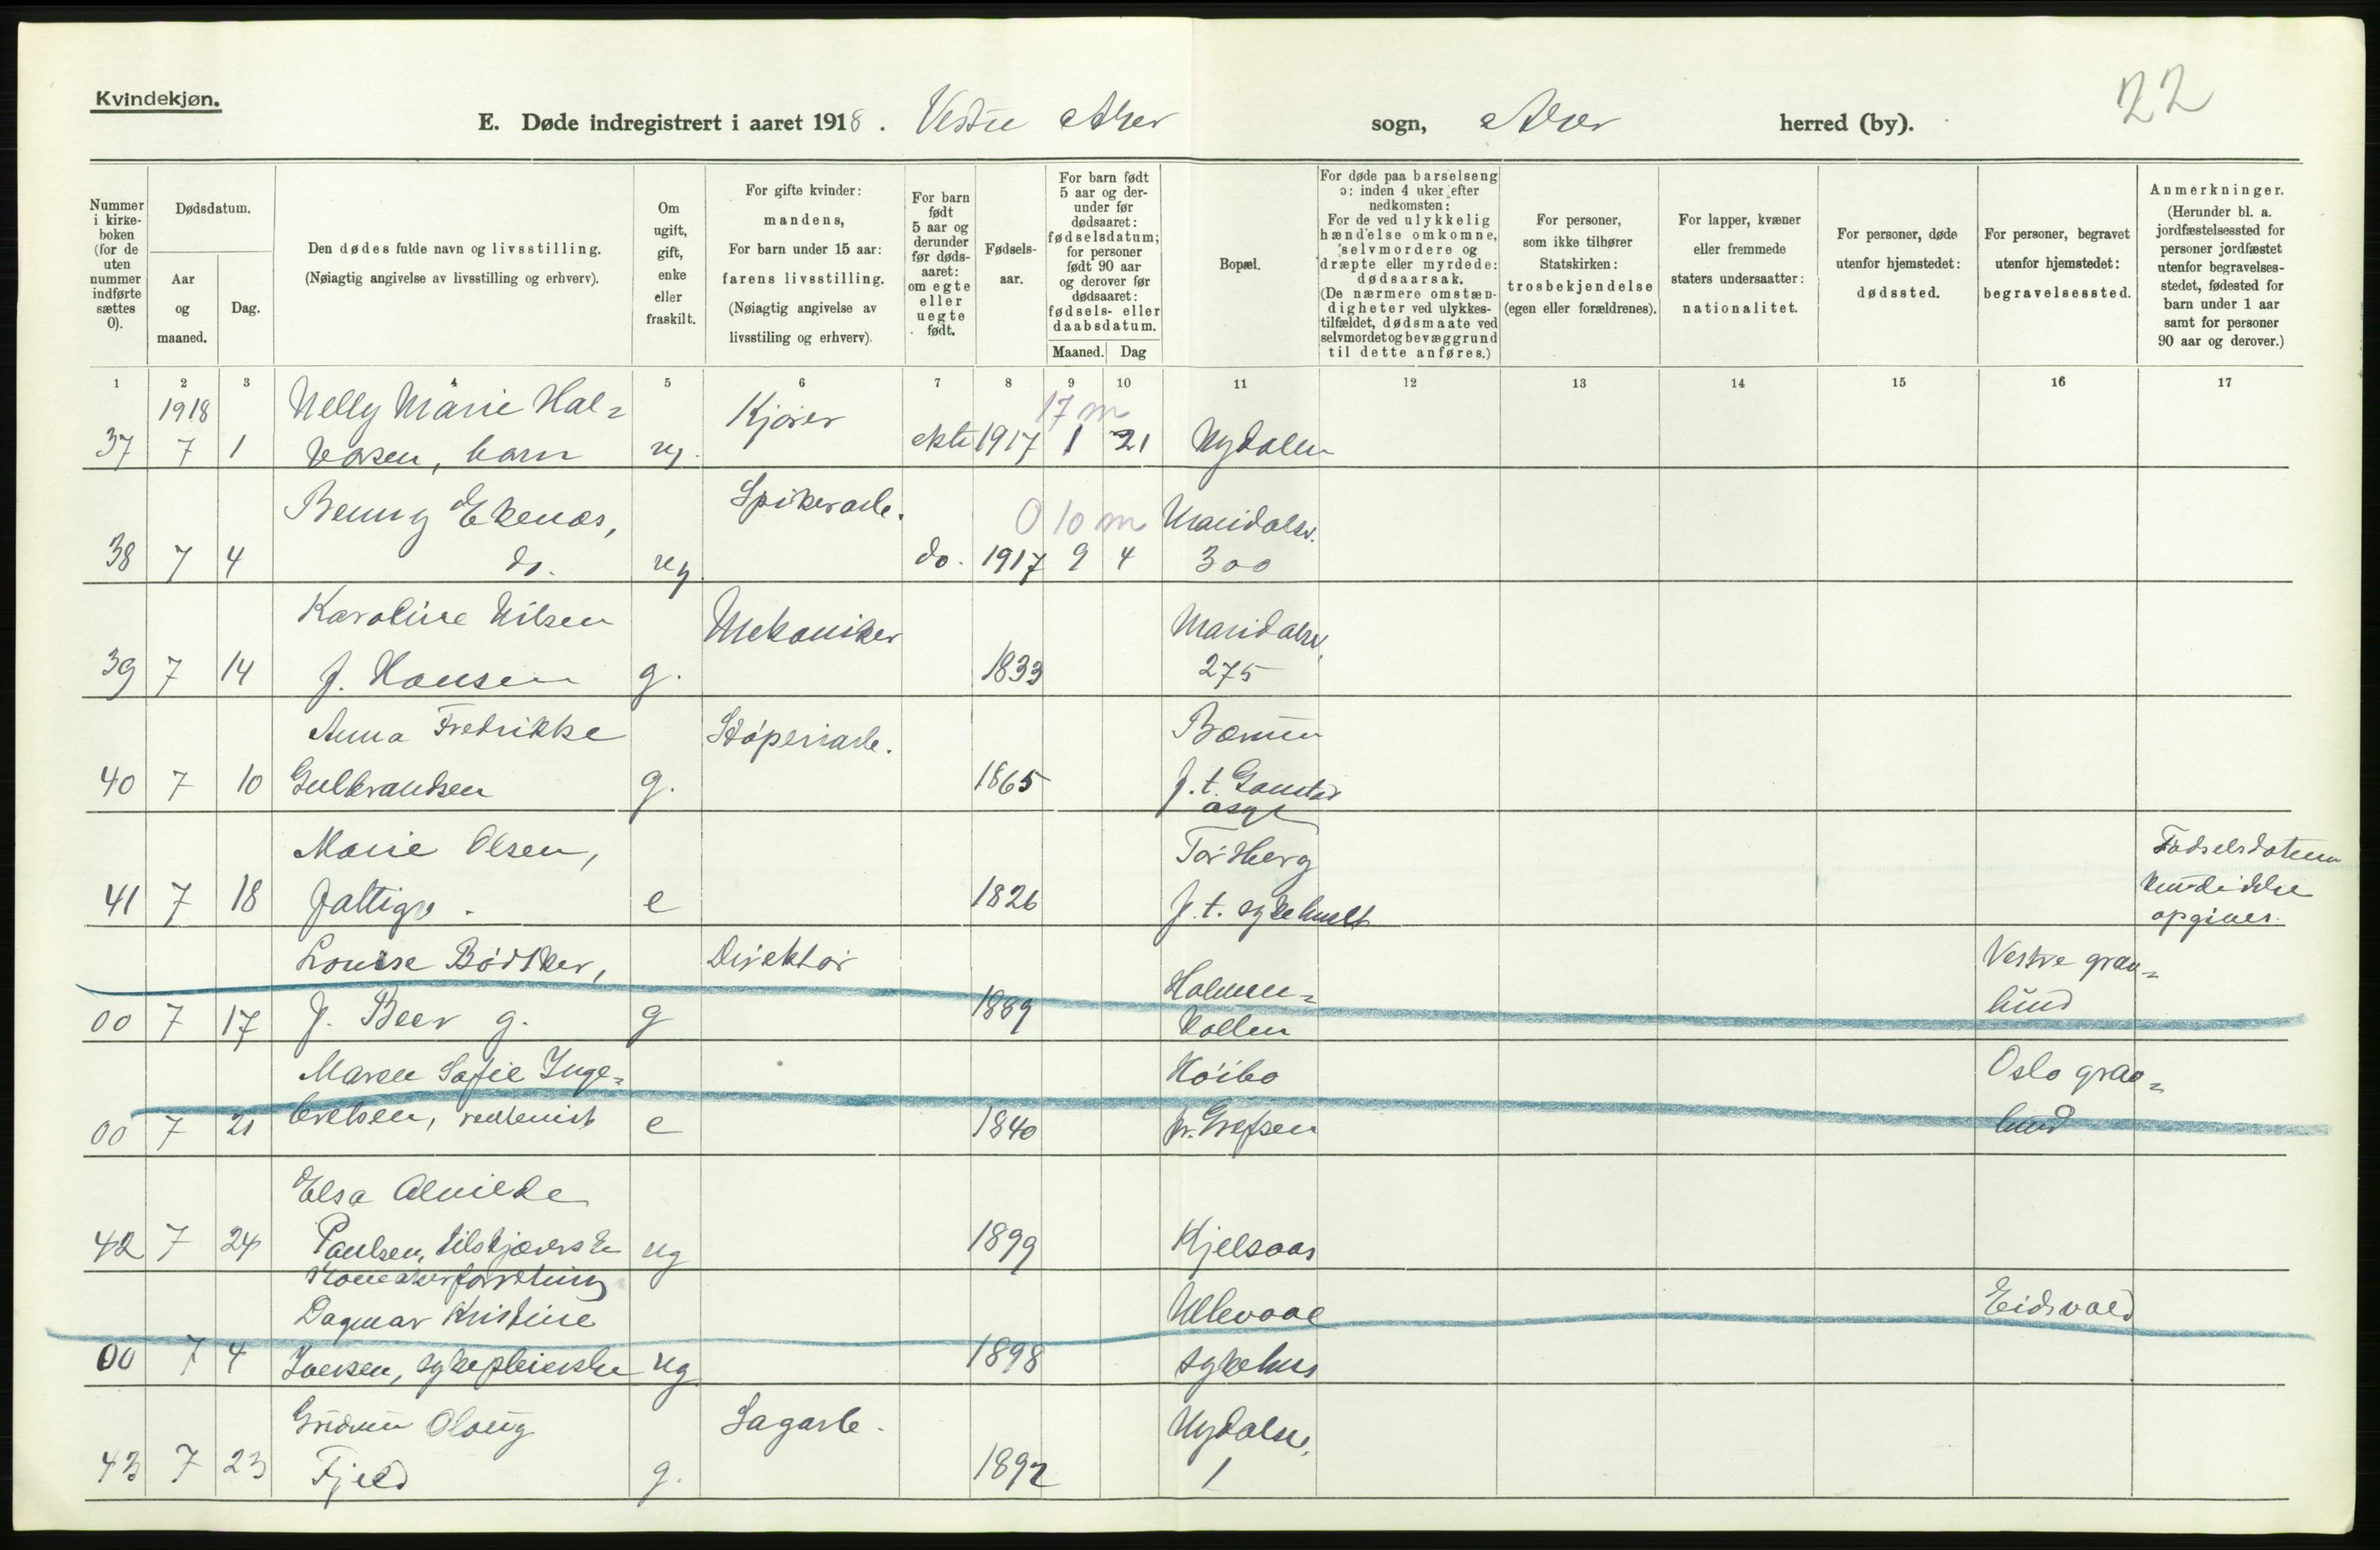 Kvindekjøn.
22
E. Døde indregistrert i aaret 1918. Vestre Aker sogn, Aker herred (by).
Nummer i kirkeboken (for de uten nummer indførte sættes 0).
Dødsdatum.
Aar og maaned.
Dag.
Den dødes fulde navn og livsstilling.
(Nøiagtig angivelse av livsstilling og erhverv).
Om ugift, gift, enke eller fraskilt.
For gifte kvinder: mandens,
For barn under 15 aar: farens livsstilling.
(Nøiagtig angivelse av livsstiling og erhverv).
For barn født 5 aar og derunder før dødsaaret: om egte eller uegte født.
Fødselsaar.
For barn født 5 aar og derunder før dødsaaret: fødselsdatum; for personer født 90 aar og derover før dødsaaret: fødsels- eller daabsdatum.
Maaned. Dag
Bopæl.
For døde paa barselseng ɔ: inden 4 uker efter nedkomsten:
For de ved ulykkelig hændelse omkomne, selvmordere og dræpte eller myrdede: dødsaarsak.
(De nærmere omstændigheter ved ulykkestilfældet, dødsmaate ved selvmordet og bevæggrund til dette anføres.)
For personer, som ikke tilhører Statskirken: trosbekjendelse (egen eller forældrenes).
For lapper, kvæner eller fremmede staters undersaatter: nationalitet.
For personer, døde utenfor hjemstedet: dødssted.
For personer, begravet utenfor hjemstedet: begravelsessted.
Anmerkninger.
(Herunder bl. a. jordfæstelsessted for personer jordfæstet utenfor begravelsesstedet, fødested for barn under 1 aar samt for personer 90 aar og derover.)
1 2 3 4 5 6 7 8 9 10 11 12 13 14 15 16 17
1918 Nelly Marie Hal= Kjører 17 m
37 7 1 vorsen, barn ug. ekte 1917 1 21 Nydalen
Benny Ekenes, Spikerarb. 0 10 m Maridalsv.
38 7 4 do. ug. do. 1917 9 4 300
Karoline Nilsen Mekaniker Maridalsv.
39 7 14 f. Hansen g. 1833 275
Anna Fredrikke Støperiarb. Bærum
40 7 10 Gulbrandsen g. 1865 f. t. Gaustad
asyl
Marie Olsen, Torsberg Fødselsdatum
41 7 18 fattig. e 1826 f. t. sykehuset kunde ikke
opgives.
Louise Bødtker, Direktør Holmen= Vestre grav=
00 7 17 f. Beer g. g 1889 kollen lund
Maren Sofie Inge= Høibo Oslo grav=
00 7 21 bretsen, rentenist e 1840 pr. Grefsen lund
Elsa Alvilde
42 7 24 Paulsen, tilskjærerske ug 1899 Kjelsaas
Dagmar Kristine Ullevaal Eidsvold
00 7 4 Iversen, sykepleierske ug 1898 sykehus
Gudrun Olaug Sagarb. Nydalsv.
43 7 23 Fjeld g. 1892 1